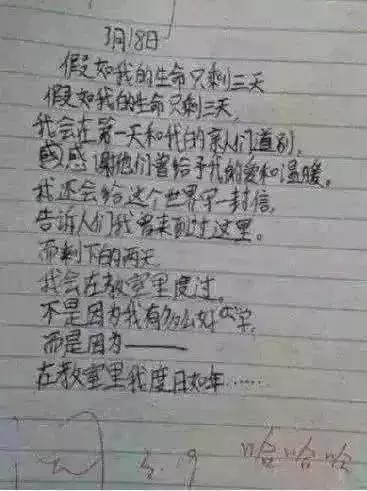 3月18日
假如我的生命只剩三天
假如我的生命只剩三天,
我会在第一天和我的亲人们道别,
感谢他们曾给予我的爱和温暖。
我还会给这个世界写一封信,
告诉人们我曾来到过这里。
而剩下的两天
我会在教室里度过。
不是因为我有多么好学,
而是因为——
在教室里我度日如年……
3.19
哈哈哈